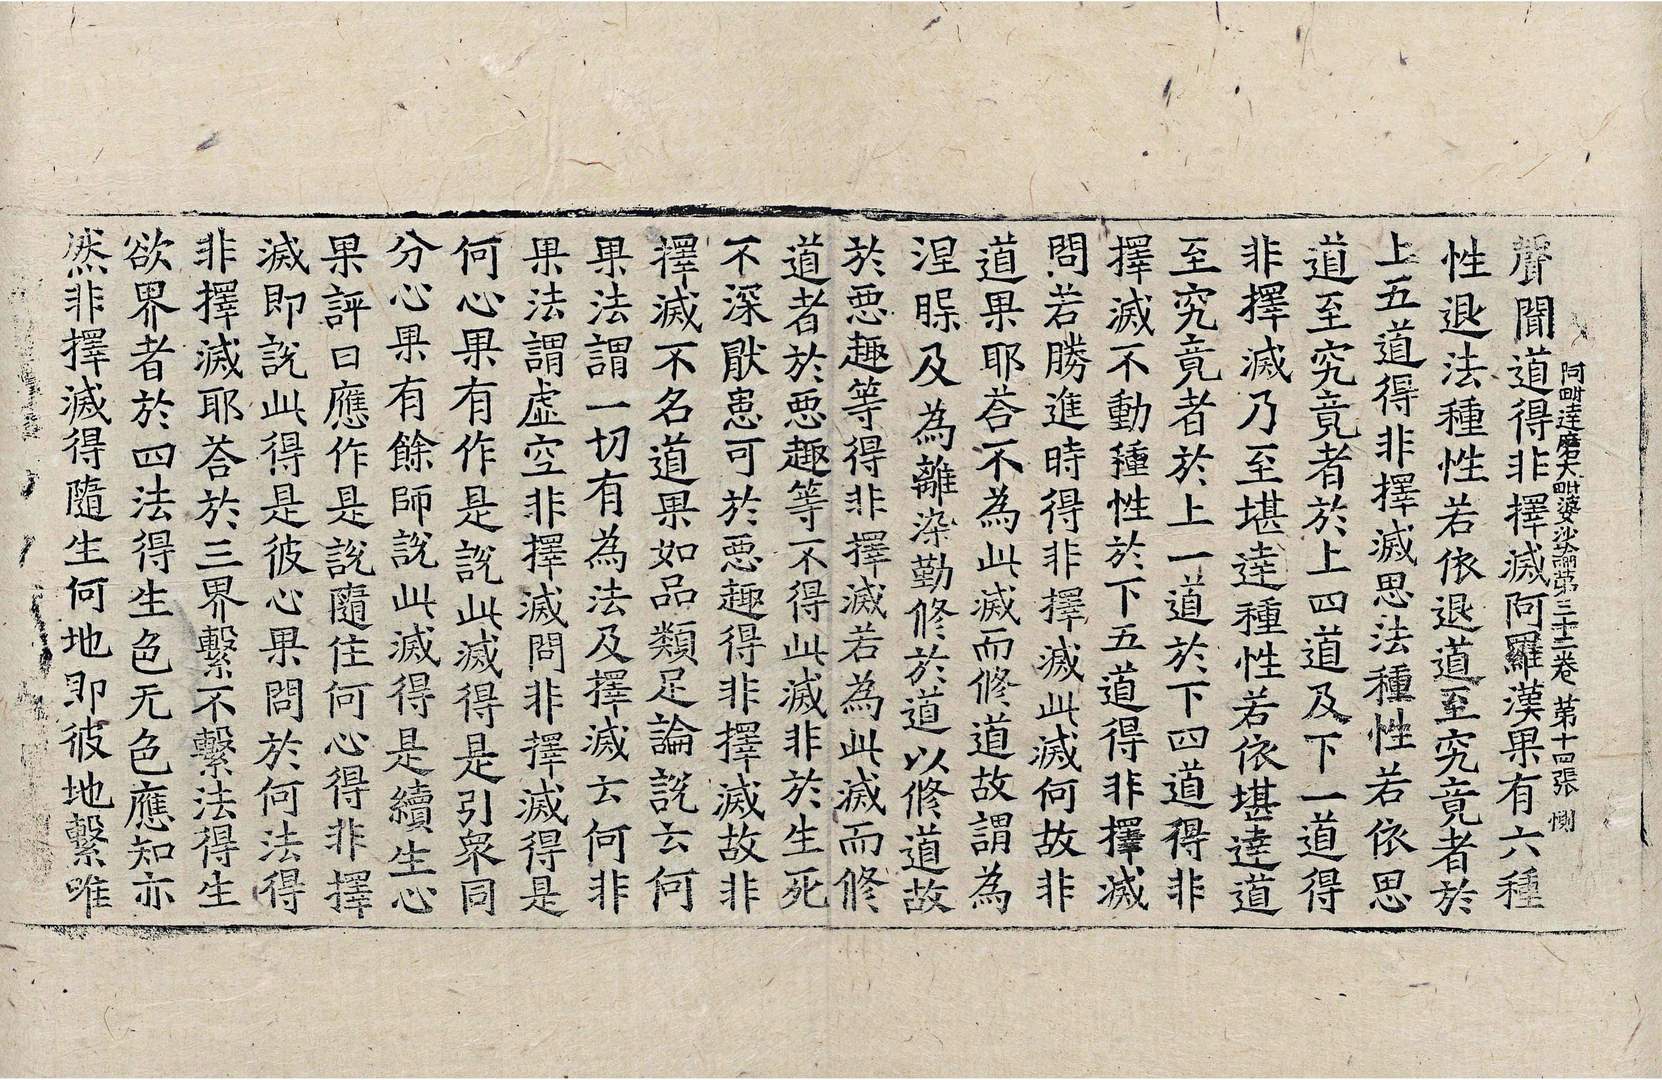 阿毗達磨大毗婆沙論第三十二卷 第十四張 惻
聲聞道得非擇滅阿羅漢果有六種
性退法種性若依退道至究竟者於
上五道得非擇滅思法種性若依思
道至究竟者於上四道及下一道得
非擇滅乃至堪達種性若依堪達道
至究竟者於上一道於下四道得非
擇滅不動種性於下五道得非擇滅
問若勝進時得非擇滅此滅何故非
道果耶荅不為此滅而修道故謂為
涅槃及為離染勤修於道以修道故
於惡趣等得非擇滅若為此滅而修
道者於惡趣等不得此滅非於生死
不深猒患可於惡趣得非擇滅故非
擇滅不名道果如品類足論說云何
果法謂一切有為法及擇滅云何非
果法謂虛空非擇滅問非擇滅得是
何心果有作是說此滅得是引衆同
分心果有餘師說此滅得是續生心
果評曰應作是說隨住何心得非擇
滅即說此得是彼心果問於何法得
非擇滅耶荅於三界繫不繫法得生
欲界者於四法得生色无色應知亦
然非擇滅得隨生何地即彼地繫唯